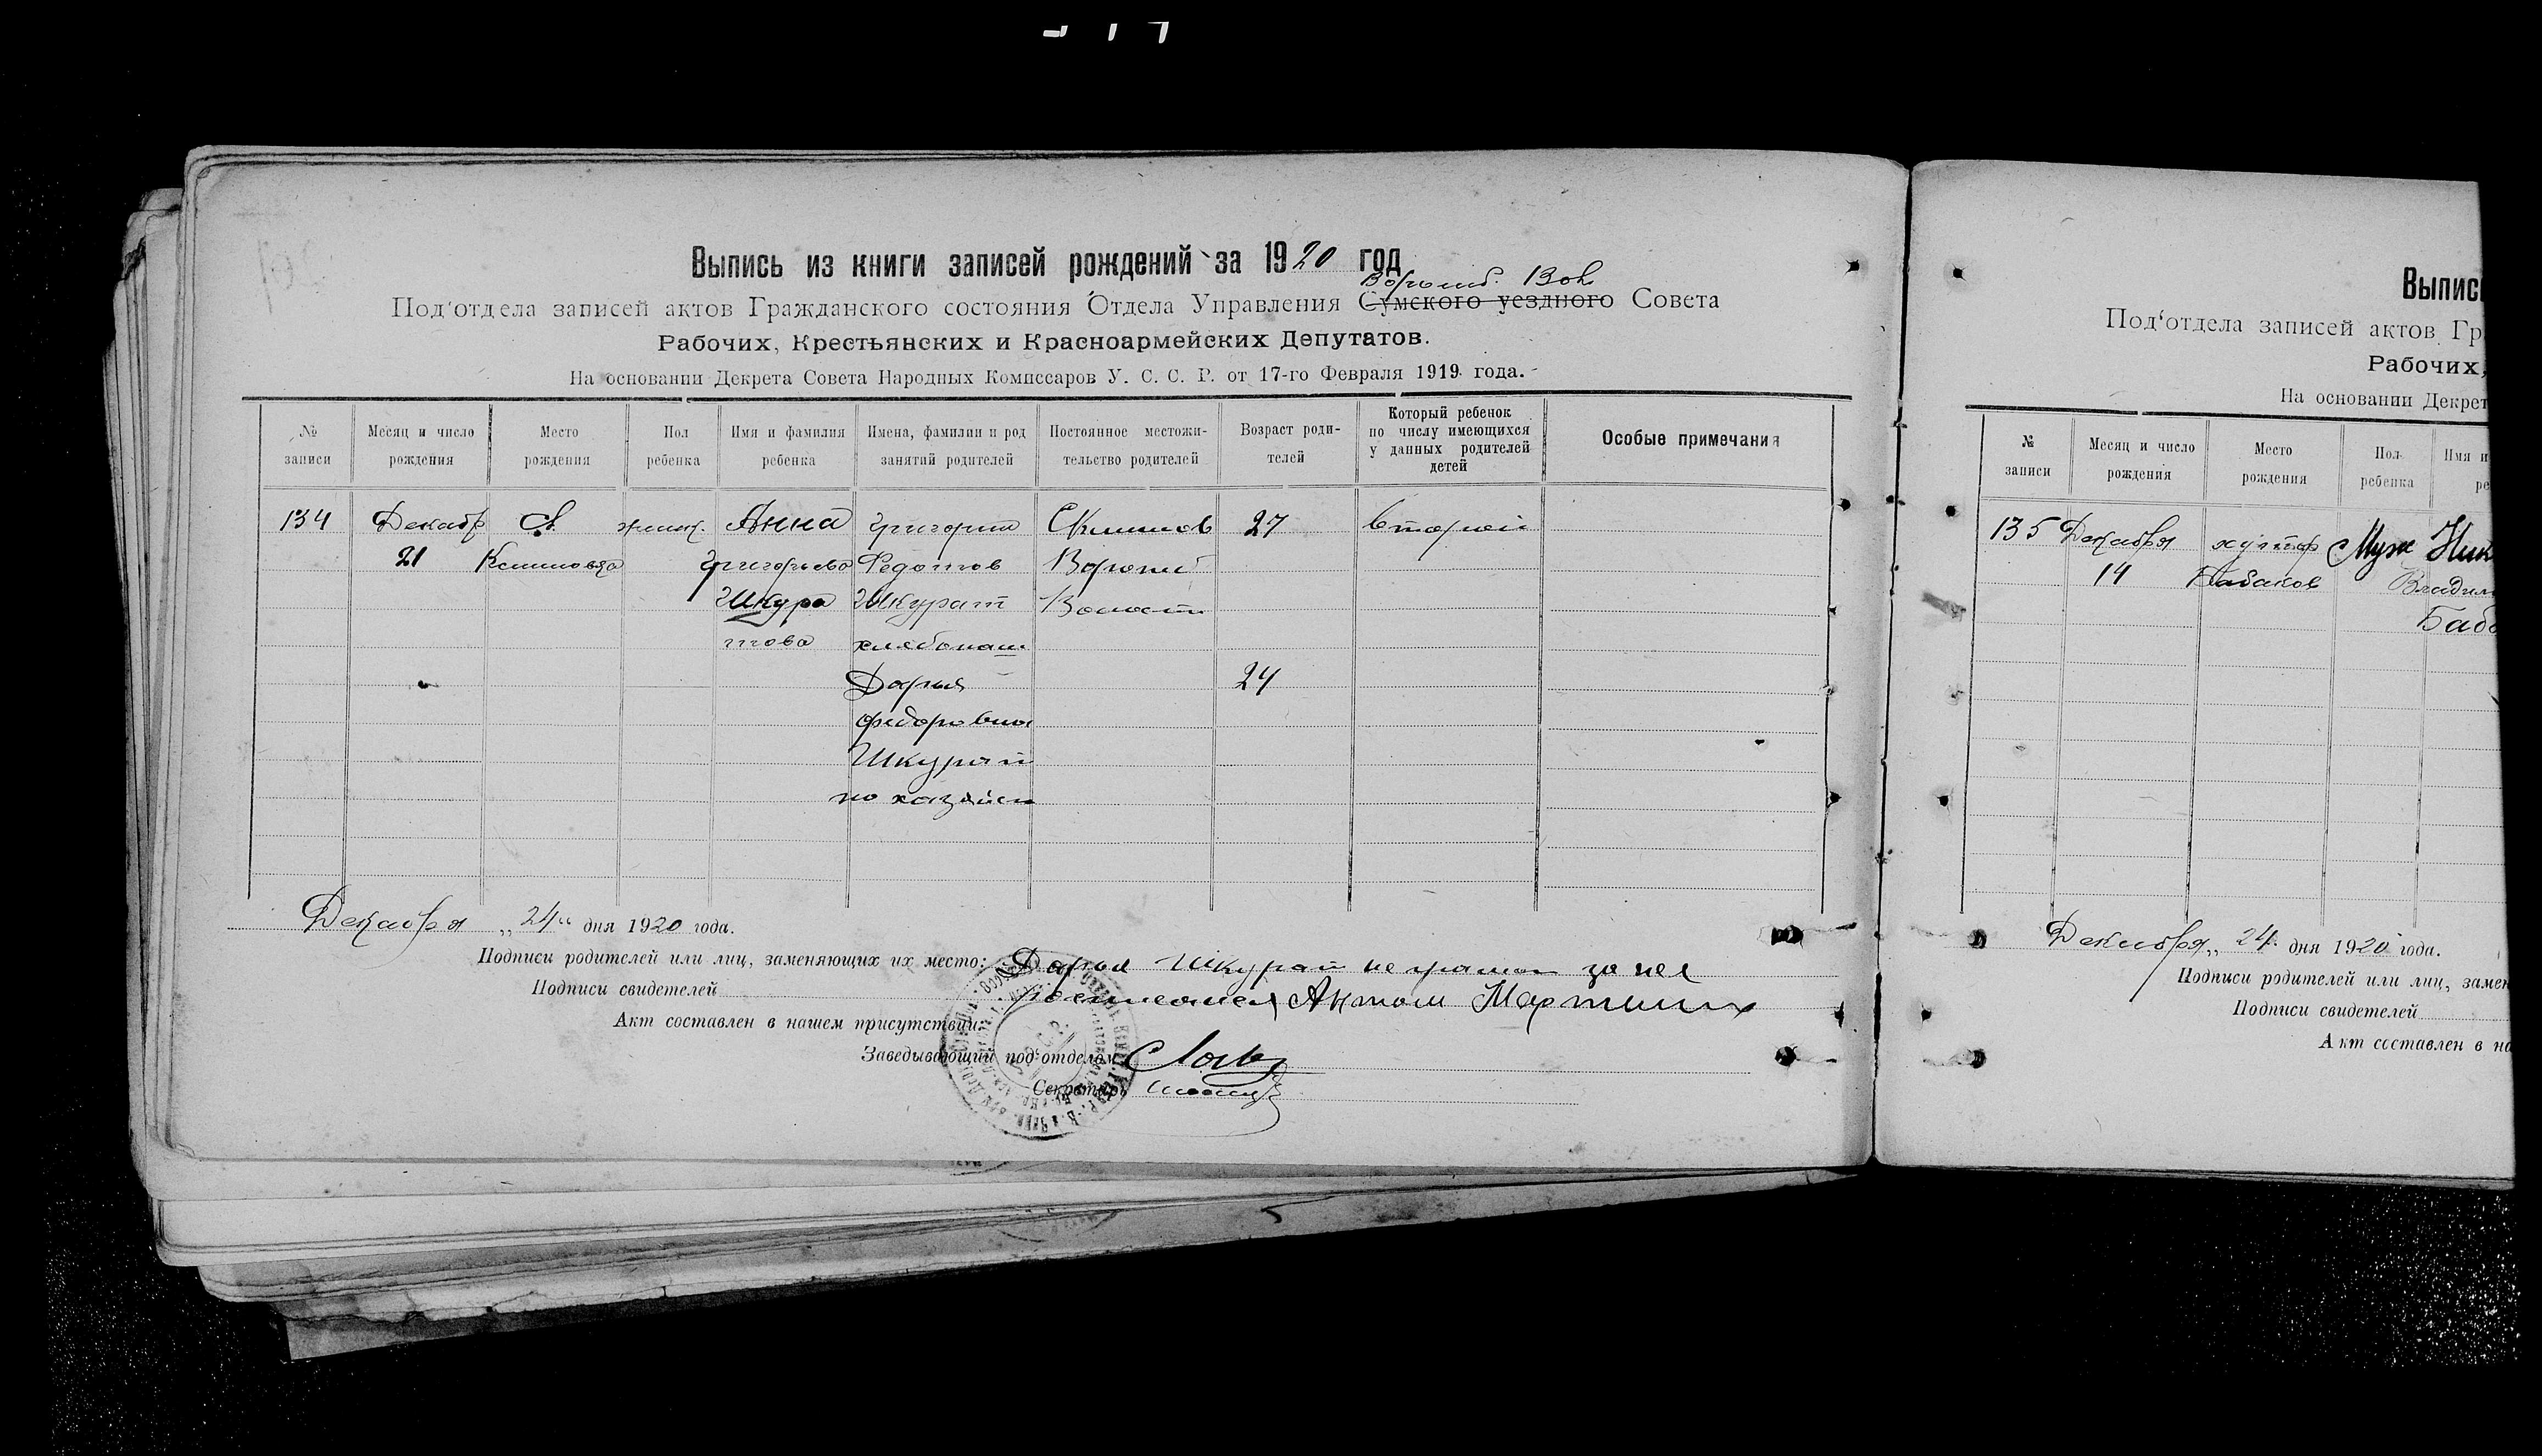 Выпись из книги записей рождений за 1920 год
Ворожб. Вол
Под'отдела записей актов Гражданского состояния Отдела Управления Сумского уездного Совета
Рабочих, Крестьянских и Красноармейских Депутатов.
На основании Декрета Совета Народных Комиссаров У. С. С. Р. от 17-го Февраля 1919 года.
№ записи
Месяц и число рождения
Место рождения
Пол ребенка
Имя и фамилия ребенка
Имена, фамилии и род занятий родителей
Постоянное местожительство родителей
Возраст родителей
Который ребенок по числу имеющихся у данных родителей детей
Особые примечания
134 Декабр С. Анна Григорий 27 второй
21 Григорьева Федотов
Шкура Шкурат Волости
това хлебопаш
Дарья 24
Федоровна
Шкурат
по хозяйст
Декабря „24“ дня 1920 года.
Подписи родителей или лиц, заменяющих их место: Дарья Шкурат неграмот за нее
Подписи свидетелей росписался Антон
Акт составлен в нашем присутствии:
Заведывающий под'отделом
Секретарь
Выпис
Под'отдела записей актов Гр
Рабочих,
На основании Декрет
№ записи
Месяц и число рождения
Место рождения
Пол ребенка
Имя и
ре
135 Декабря хутор Муж Ник
14 Бабаков Владим
Баб
Декабря „24“ дня 1920 года.
Подписи родителей или лиц, замен
Подписи свидетелей
Акт составлен в на